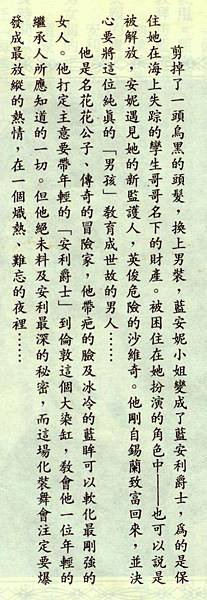 剪掉了一頭烏黑的頭髮，換上男裝，藍安妮小姐變成了藍安利爵士，為的是保
住她在海上失踪的孿生哥哥名下的財產。被困住在她扮演的角色中——也可以說是
被解放，安妮遇見她的新監護人，英俊危險的沙維奇。他剛自錫蘭致富回來，並決
心要將這位純真的「男孩」教育成世故的男人……
他是名花花公子、傳奇的冒險家，他帶疤的臉及冰冷的藍眸可以軟化最剛強的
女人。他打定主意要帶年輕的「安利爵士」到倫敦這個大染缸，教會他一位年輕的
繼承人所應知道的一切。但他絕未料及安利最深的秘密，而這場化裝舞會注定要爆
發成最放縱的熱情，在一個熾熱、難忘的夜裡……